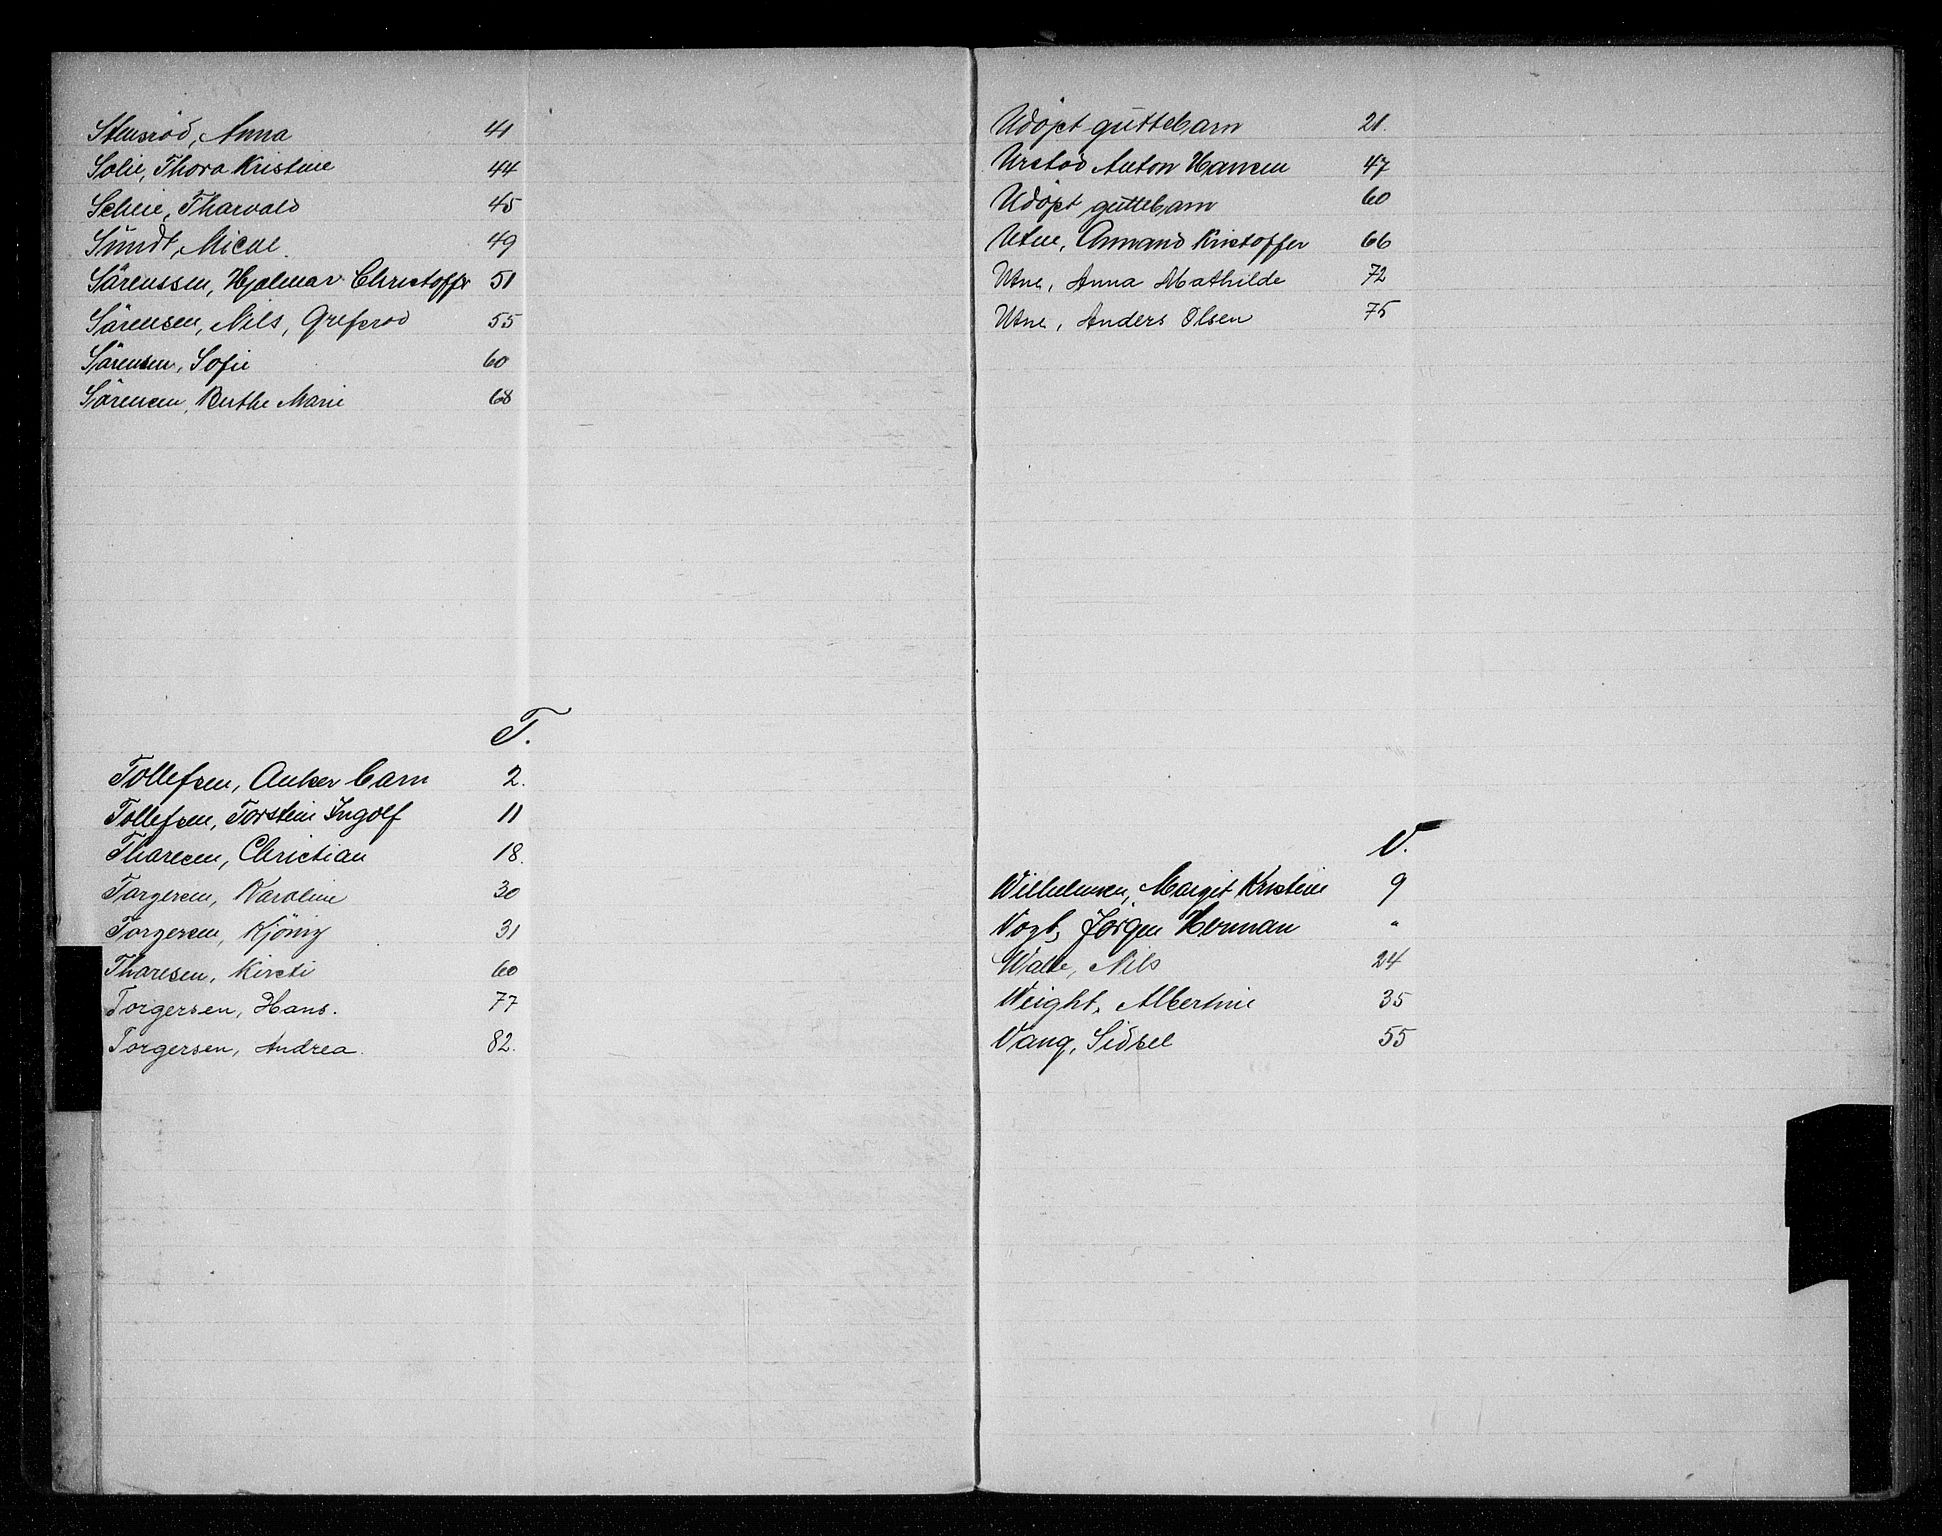 Stensrød, Anna 41
Solie, Thora Kristine 44
Scheie, Tharvald 45
Sundt, Nicol. 49
Sørenssen, Hjalmar Christoffer 51
Sørensen, Nils, Grefsrod 55
Sørensen, Sofie 60
Sørensen, Berthe Marie 68
T.
Tollefsen, Anker barn 2.
Tollefsen, Torstein Ingolf 11
Tharesen, Christian 18.
Torgersen, Karoline 30
Torgersen, 31
Tharesen, Kirsti 60
Torgersen, Hans. 77
Torgersen, Andrea. 82.
Udøpt guttebarn 21.
Urstød Anton Hansen 47
Udøpt guttebarn 60
Utne, Annand Kristoffer 66
Utne, Anna Mathilde 72
Utne, Anders Olsen 75
V.
Wilhelmsen, Margit Kristine 9
Vogt, Jørgen Herman "
Walle, Nils 24
Weight, Albertine 35
Vang, Sidsel 55